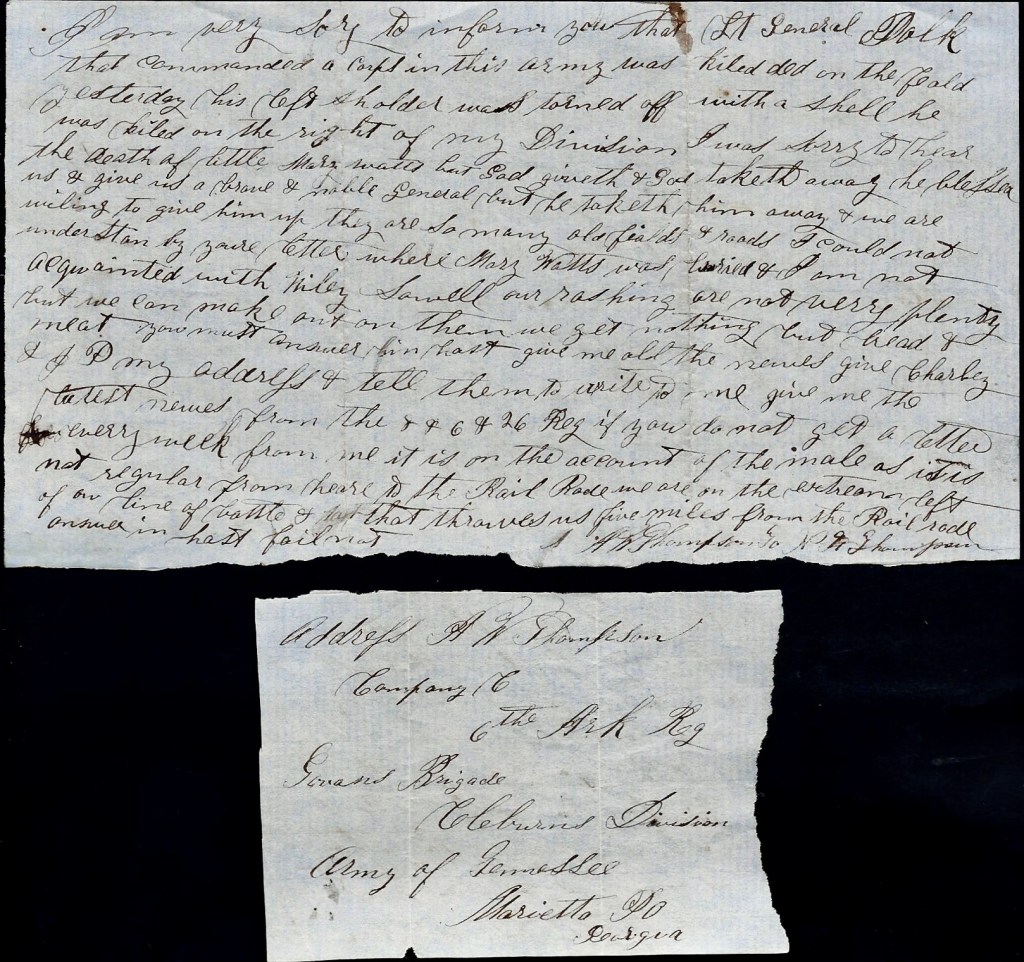 I am very sory to inform you that Lt General Polk
that commanded a Corps in this army was kiled ded on the feald
yesterday his left sholder was torned off with a shell he
was kiled on the right of my Division I was sorry to hear
the death of little Mary watts but God giveth & God taketh away he blessed
us & give us a brave & noble General but he taketh him away & we are
wiling to give him up they are so many old fields & roads I could not
understan by youre letter where Mary Watts was buried & I am not
acqwainted with Wiley Sowell our rashing are not verry plenty
but we can make out on them we get nothing but bread &
meat you must answer in hast give me all the newes give Charley
& J P my address & tell them to write to me give me the
latest newes from the & 6 & 26 Reg if you do not get a letter
everry week from me it is on the account of the male as it is
not regular from heare to the Rail Rode we are on the extream left
of ou line of battle & that throwes us five miles from the Rail rode
answer in hast fail not A W Thompson to N Thompson
Address A W Thompson
Company C
6the Ark Reg
Govans Brigade
Cleburns Division
Army of Tennessee
Marietta PO
Georgia